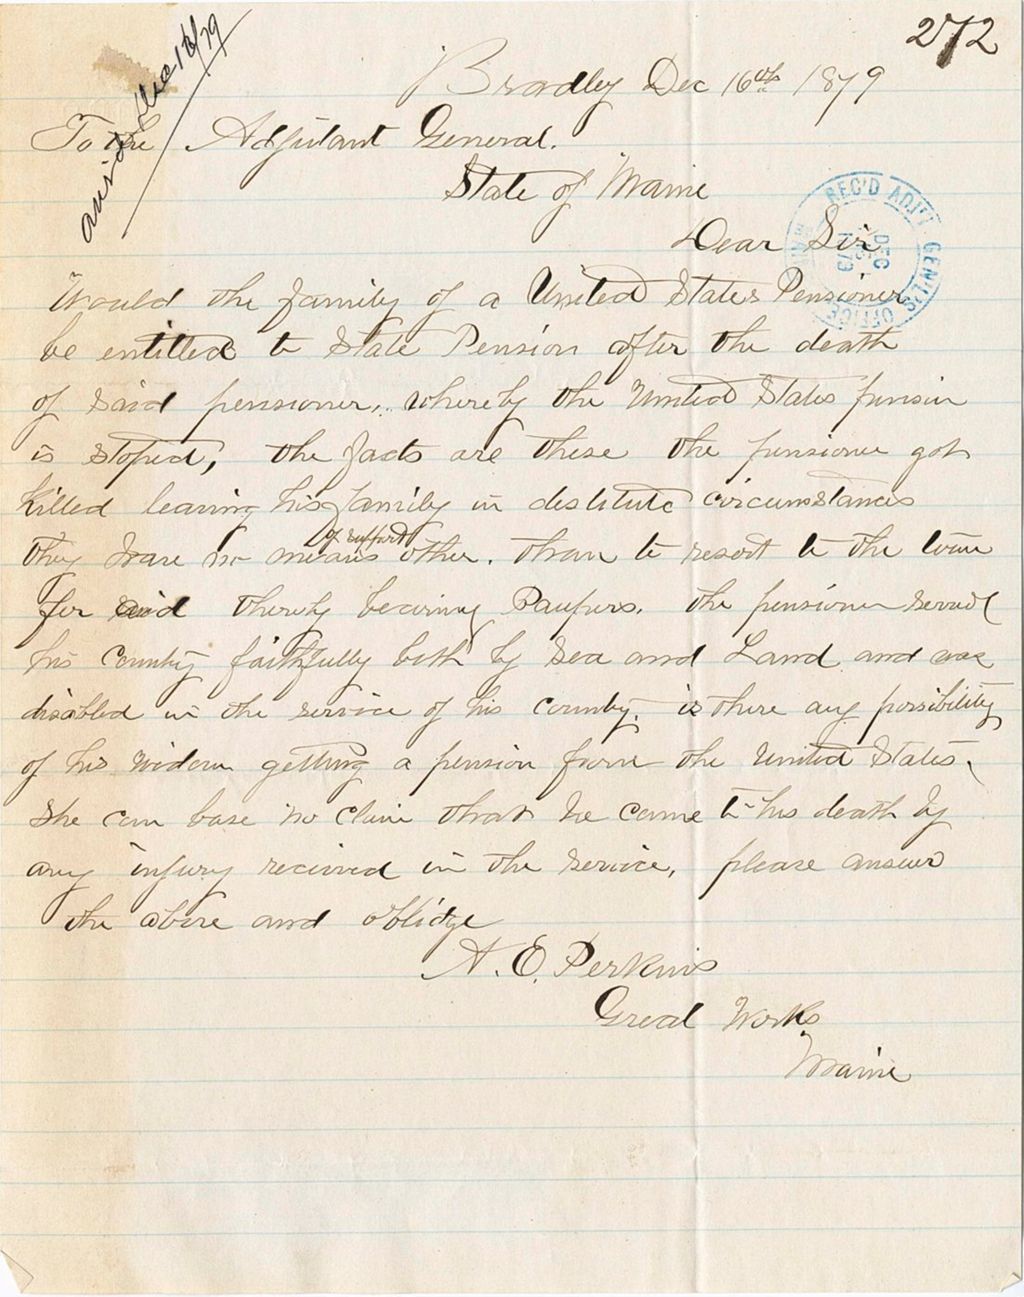 272
answd Dec 18/79
Bradley Dec 16th 1879
To the Adjutant General.
State of Maine
REC'D ADJ'T GEN'L'S OFFICE
DEC
1879
Dear Sir
Would the family of a United States Pensioner
be entitled to State Pension after the death
of said pensioner, whereby the United States pension
is stoped, the facts are these the pensioner got
killed leaving his family in destitute circumstances
they have no means of support other. than to resort to the town
for aid thereby becoming Paupers. the pensioner served
his country faithfully both by Sea and Land and was
disabled in the service of his country. is there any possibility
of his widow getting a pension from the United States,
she can base no claim that he came to his death by
any injury recieved in the service, please answer
the above and oblidge
A. E. Perkins
Great Works
Maine